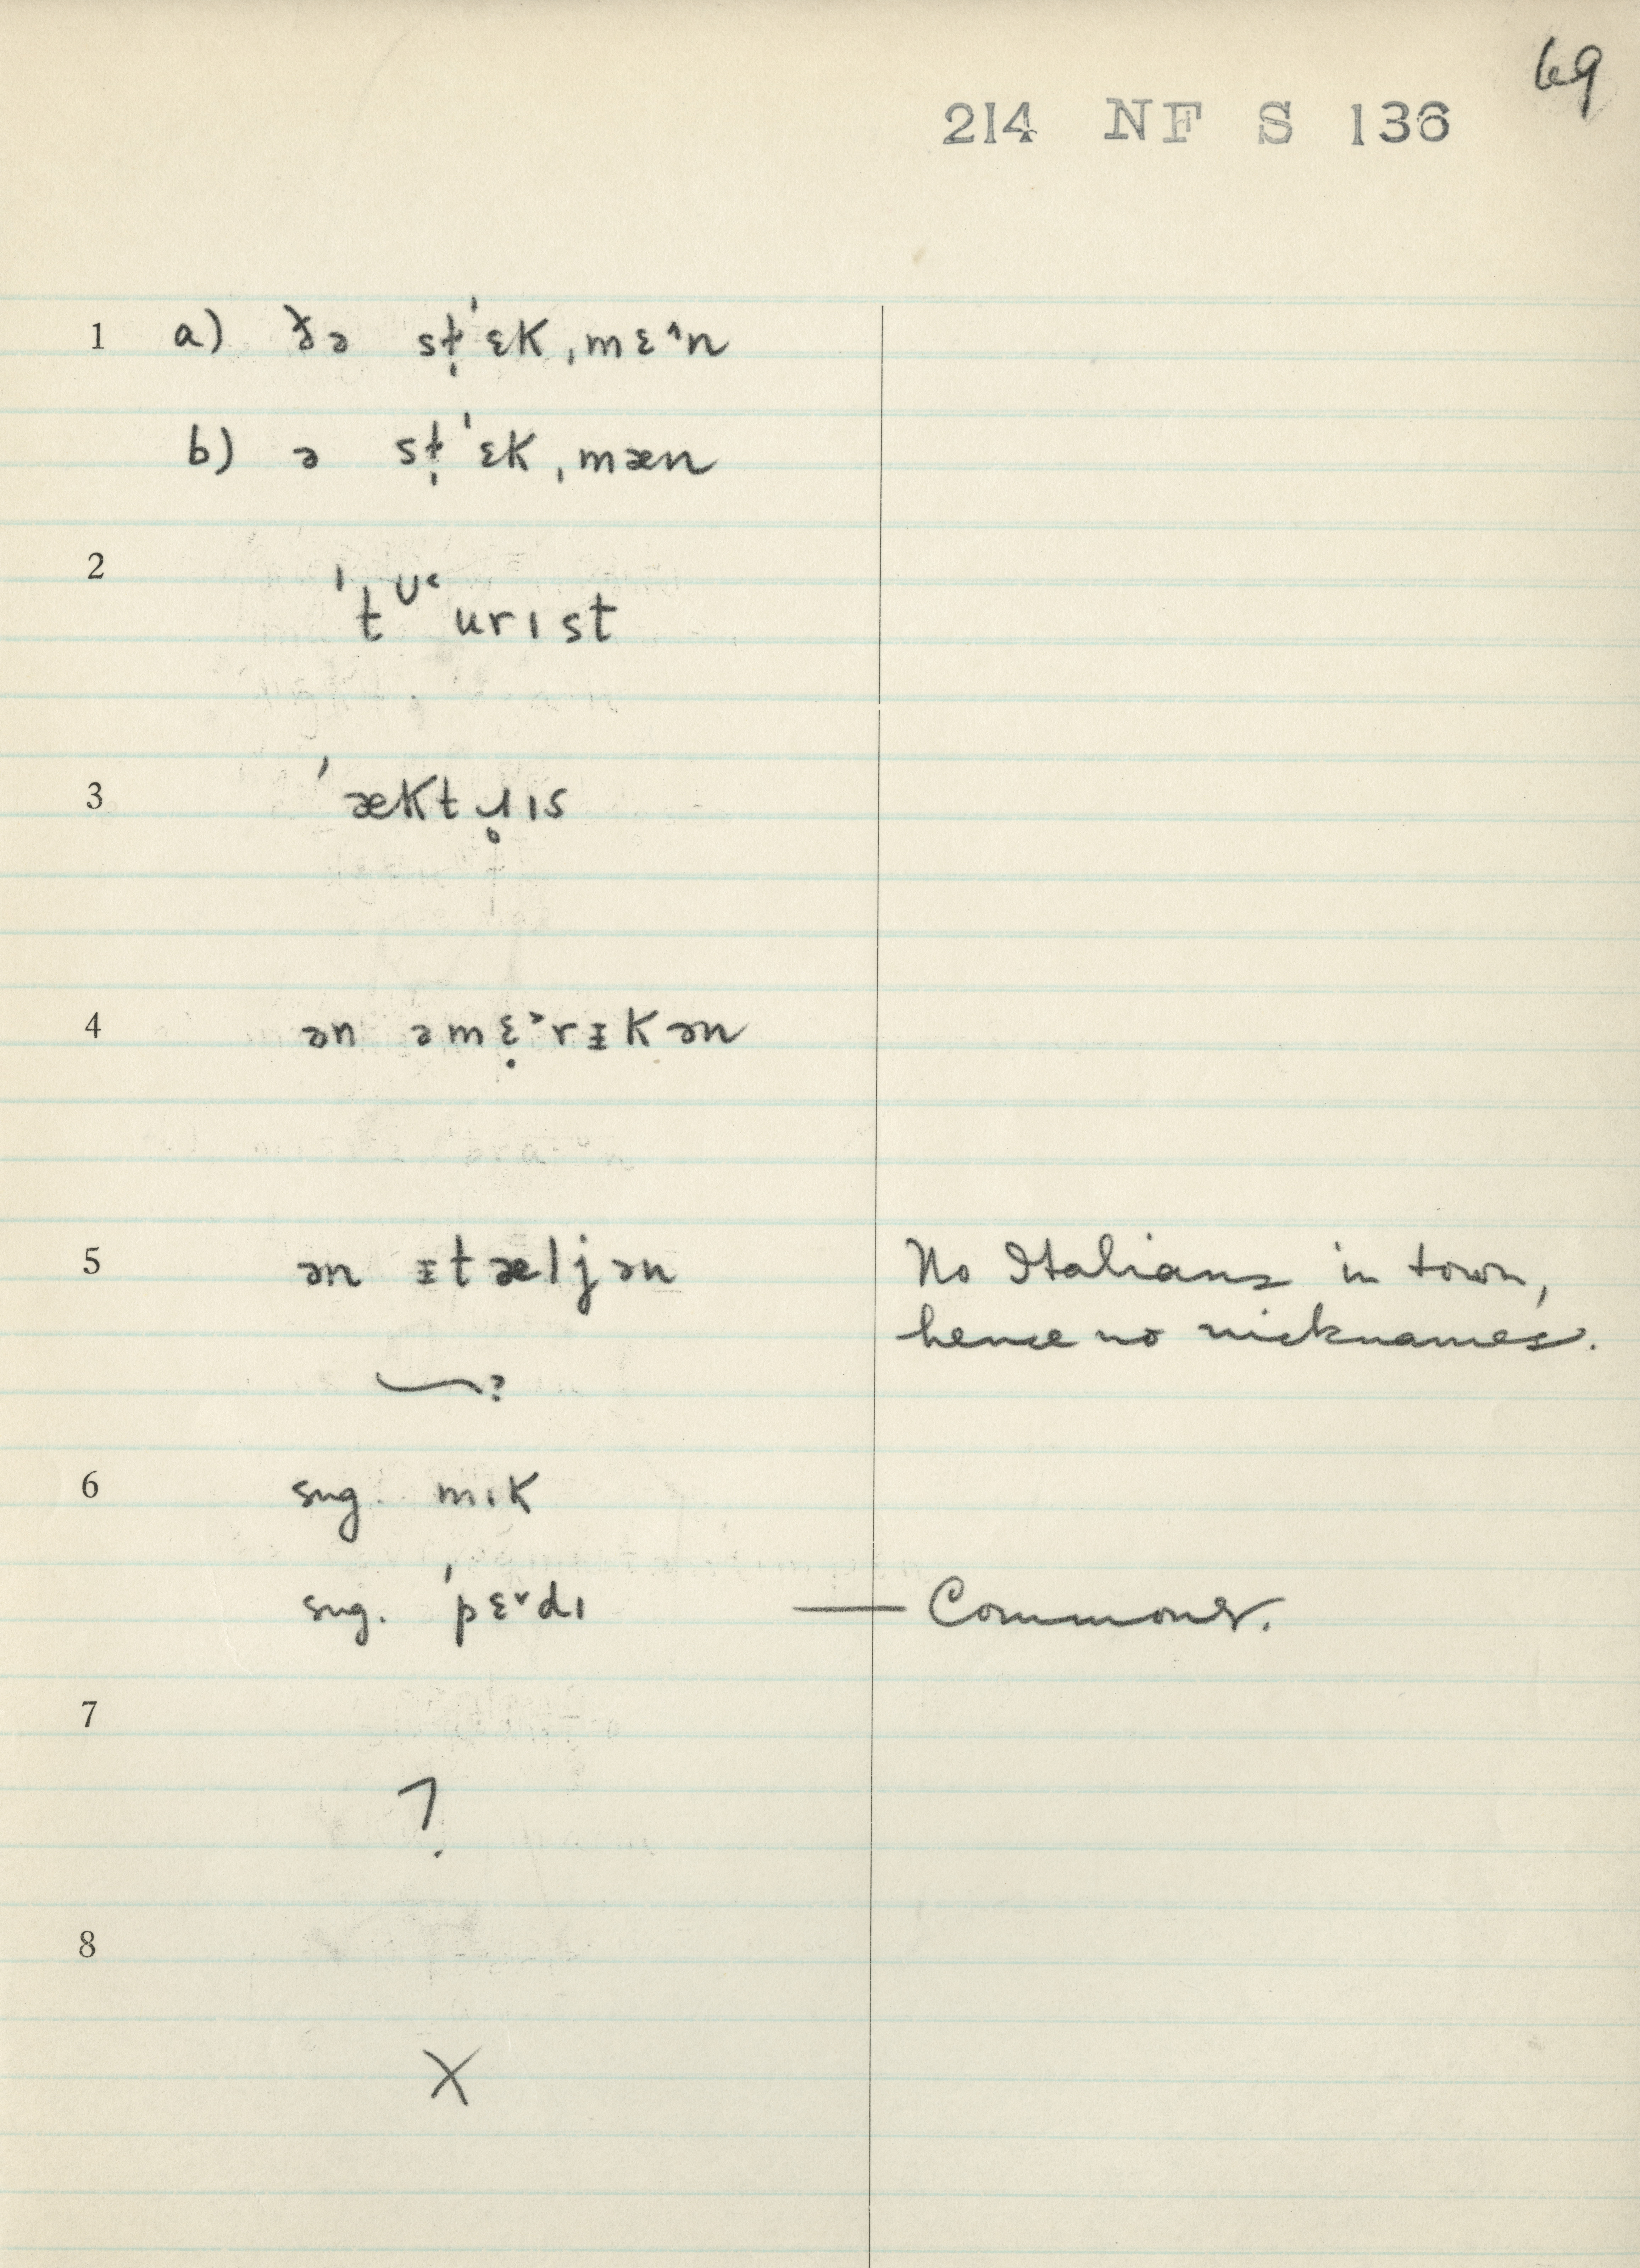 69
214 NF S 136
1 a) ðə st̩ˈɛk ˌmɛ^n
b) ə st̩ˈɛk ˌmæn
2 ˈtᶷ˂urɪst
3 ˈæktɹ̥ɪs
4 ən əmɛ̣˃rᵻkən
5 ən ᵻtæljən No Italians in town,
hence no nicknames.
?
6 sug. mɪk
sug. ˈpɛ˅dɪ — Commoner.
7
?
8
X